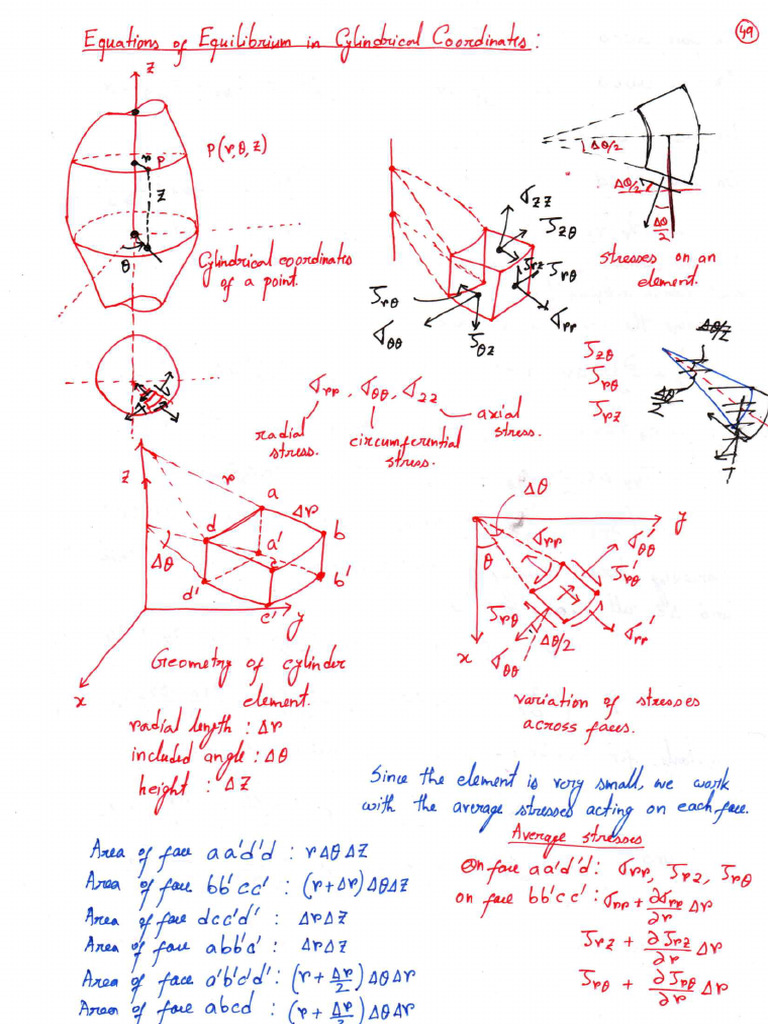 Equations of Equilibrium in Cylindrical Coordinates:
49
z
P(r, θ, z)
r
P
z
θ
Cylindrical coordinates
of a point.
σzz
τzθ
τrz
τrθ
σrr
τrθ
σθθ
τθz
Δθ/2
Δθ/2
Δθ/2
stresses on an
element.
τzθ
τrθ
τrz
Δθ/2
Δθ/2
T
σrr, σθθ, σzz
radial
stress.
circumferential
stress.
axial
stress.
z
r
a
Δr
d
b
a'
c
Δθ
b'
d'
c'
y
x
Geometry of cylinder
element.
radial length : Δr
included angle : Δθ
height : ΔZ
Δθ
y
θ
σrr
σθθ'
τrθ'
τrθ
σrr'
Δθ/2
σθθ
x
variation of stresses
across faces.
Since the element is very small, we work
with the average stresses acting on each face.
Average stresses
On face aa'd'd : σrr, τrz, τrθ
on face bb'cc' : σrr + ∂σrr/∂r Δr
τrz + ∂τrz/∂r Δr
τrθ + ∂τrθ/∂r Δr
Area of face aa'd'd : rΔθΔZ
Area of face bb'cc' : (r+Δr)ΔθΔZ
Area of face dcc'd' : ΔrΔZ
Area of face abb'a' : ΔrΔZ
Area of face a'b'c'd' : (r + Δr/2)ΔθΔr
Area of face abcd : (r + Δr/2)ΔθΔr